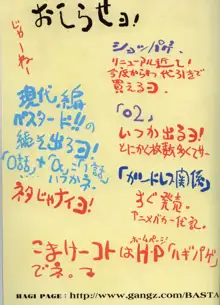 おしらせヨ!
じゃーねー
ショッパゲ
リニューアル近し!
今度からわ代引きで
買えるヨ
現代編
バスタード!!の
編も出るヨ!
「0話」+α
いつかネ
ネタじゃナイヨ!
「02」
いつか出るヨ!
とにかく枚数多くてサー
「ガードレス関係」
すぐ発売。
アニメガカー伝記。
こまけーコトはH・P「ハギパゲ」
ホームページ
でネ。
HAGI PAGE : http://www.gangz.com/BASTA